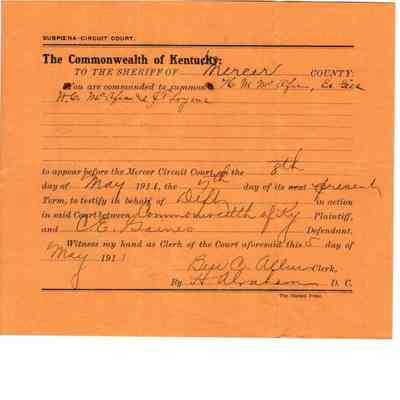 SUBPŒNA-CIRCUIT COURT.
The Commonwealth of Kentucky:
TO THE SHERIFF OF Mercer COUNTY:
You are commanded to summon H. M. McAfee,
W. C. McAfee & J. T.
to appear before the Mercer Circuit Court, on the 8th
day of May 1911, the 7th day of its next present
Term, to testify in behalf of Deft in action
in said Court between Commonwealth of Ky Plaintiff,
and C. E. Gaines Defendant.
Witness my hand as Clerk of the Court aforesaid this 5 day of
May 1911
Ben C. Allin Clerk.
By H. D. C.